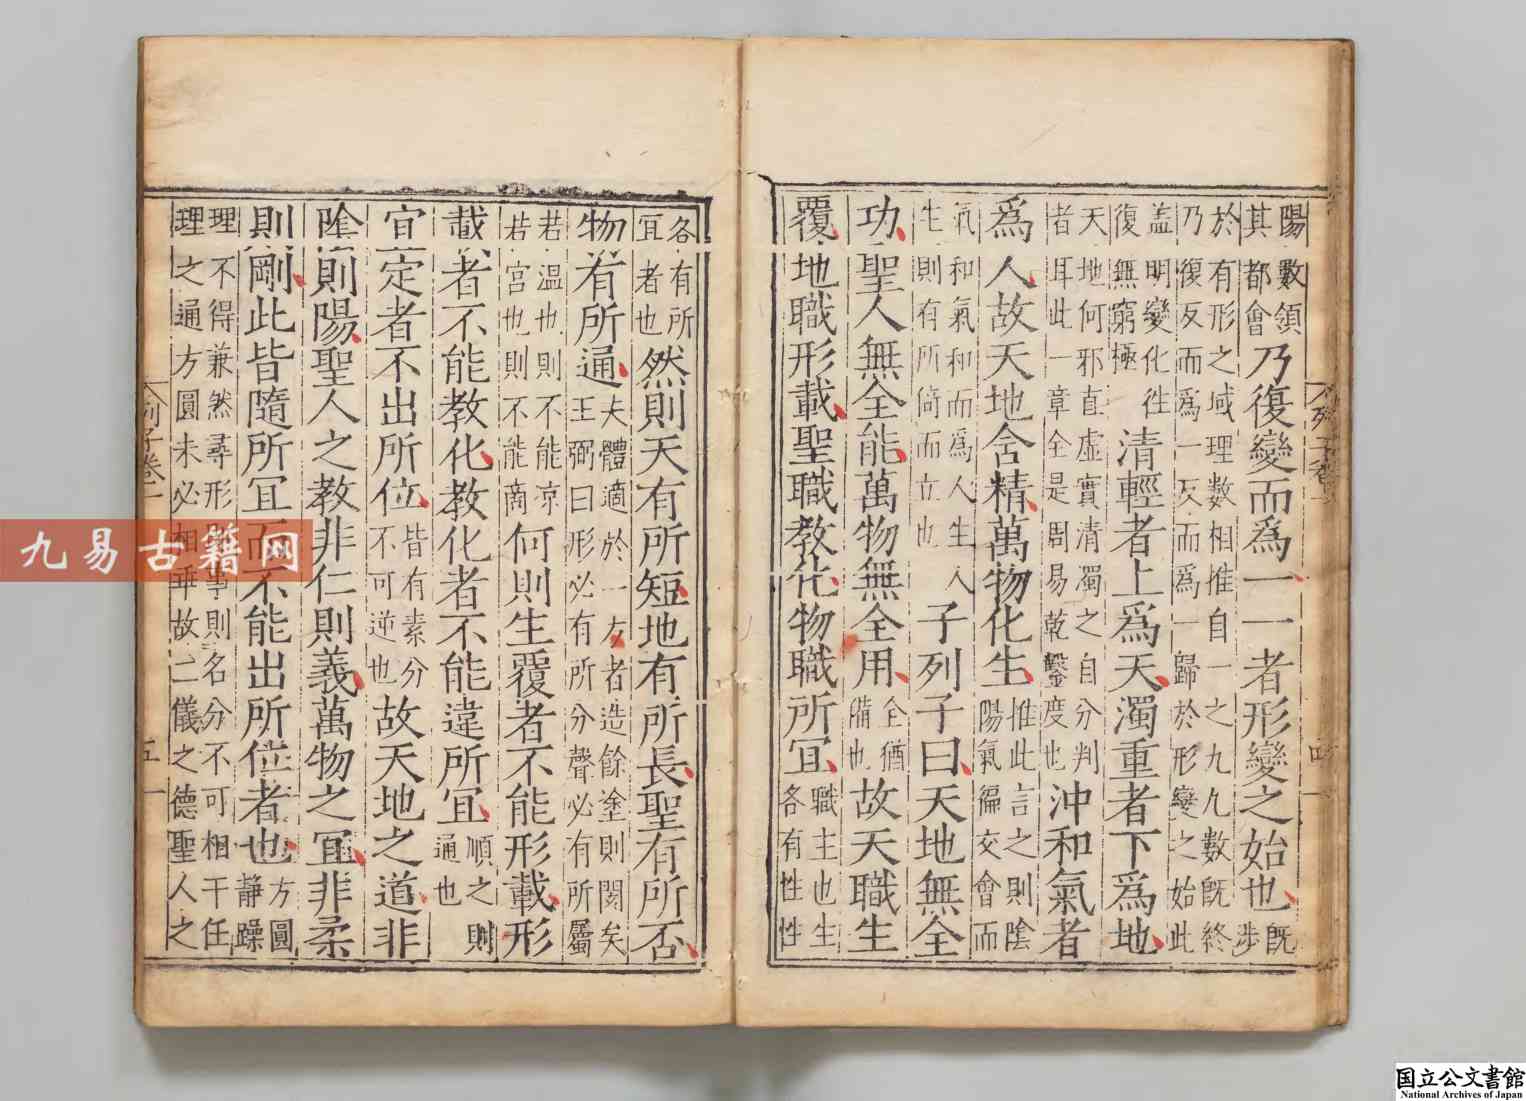 列子卷一 四
陽數領其都會乃復變而爲一一者形變之始也既涉
於有形之域理數相推自一之九九數既終乃復反而爲一反而爲一歸於形變之始此
蓋明變化往復無窮極清輕者上爲天濁重者下爲地
天地何邪直虛實清濁之自分判者耳此一章全是周易乾鑿度也沖和氣者
爲人故天地含精萬物化生推此言之則陰陽氣徧交會而
氣和氣和而爲人生人生則有所倚而立也子列子曰天地無全
功聖人無全能萬物無全用全猶備也故天職生
覆地職形載聖職教化物職所宜職主也生各有性性
各有所宜者也然則天有所短地有所長聖有所否
物有所通夫體適於一方者造餘塗則閡矣王弼曰形必有所分聲必有所屬
若温也則不能凉若宮也則不能商何則生覆者不能形載形
載者不能教化教化者不能違所宜順之則通也
宜定者不出所位皆有素分不可逆也故天地之道非
陰則陽聖人之教非仁則義萬物之宜非柔
則剛此皆隨所宜而不能出所位者也方圓靜躁
理不得兼然尋形事則名分不可相干任理之通方圓未必相乖故二儀之德聖人之
列子卷一 五
九易古籍网
国立公文書館
National Archives of Japan